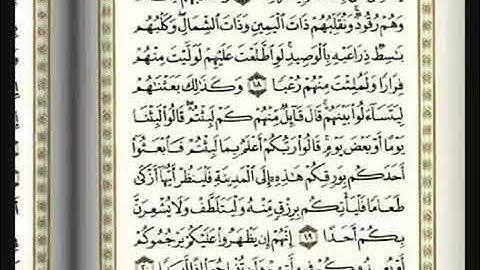 وَهُمْ رُقُودٌ ۚ وَنُقَلِّبُهُمْ ذَاتَ ٱلْيَمِينِ وَذَاتَ ٱلشِّمَالِ ۖ وَكَلْبُهُم
بَٰسِطٌ ذِرَاعَيْهِ بِٱلْوَصِيدِ ۚ لَوِ ٱطَّلَعْتَ عَلَيْهِمْ لَوَلَّيْتَ مِنْهُمْ
فِرَارًا وَلَمُلِئْتَ مِنْهُمْ رُعْبًا ١٨ وَكَذَٰلِكَ بَعَثْنَٰهُمْ
لِيَتَسَآءَلُوا۟ بَيْنَهُمْ ۚ قَالَ قَآئِلٌ مِّنْهُمْ كَمْ لَبِثْتُمْ ۖ قَالُوا۟ لَبِثْنَا
يَوْمًا أَوْ بَعْضَ يَوْمٍ ۚ قَالُوا۟ رَبُّكُمْ أَعْلَمُ بِمَا لَبِثْتُمْ فَٱبْعَثُوٓا۟
أَحَدَكُم بِوَرِقِكُمْ هَٰذِهِۦٓ إِلَى ٱلْمَدِينَةِ فَلْيَنظُرْ أَيُّهَآ أَزْكَىٰ
طَعَامًا فَلْيَأْتِكُم بِرِزْقٍ مِّنْهُ وَلْيَتَلَطَّفْ وَلَا يُشْعِرَنَّ
بِكُمْ أَحَدًا ١٩ إِنَّهُمْ إِن يَظْهَرُوا۟ عَلَيْكُمْ يَرْجُمُوكُمْ